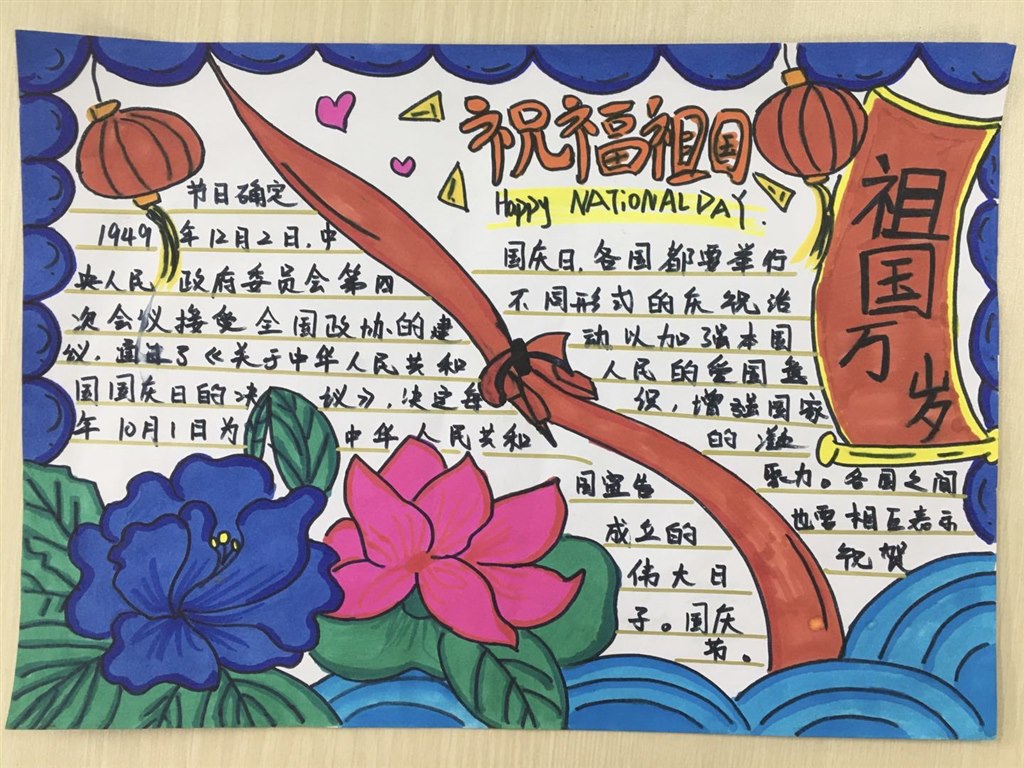 祝福祖国
Happy NATIONAL DAY.
祖国万岁
节日确定
1949年12月2日,中
央人民政府委员会第四
次会议接受全国政协的建
议,通过了《关于中华人民共和
国国庆日的决议》,决定每
年10月1日为中华人民共和
国宣告
成立的
伟大日
子。国庆
节。
国庆日,各国都要举行
不同形式的庆祝活
动以加强本国
人民的爱国意
识,增强国家
的凝
聚力。各国之间
也要相互表示
祝贺